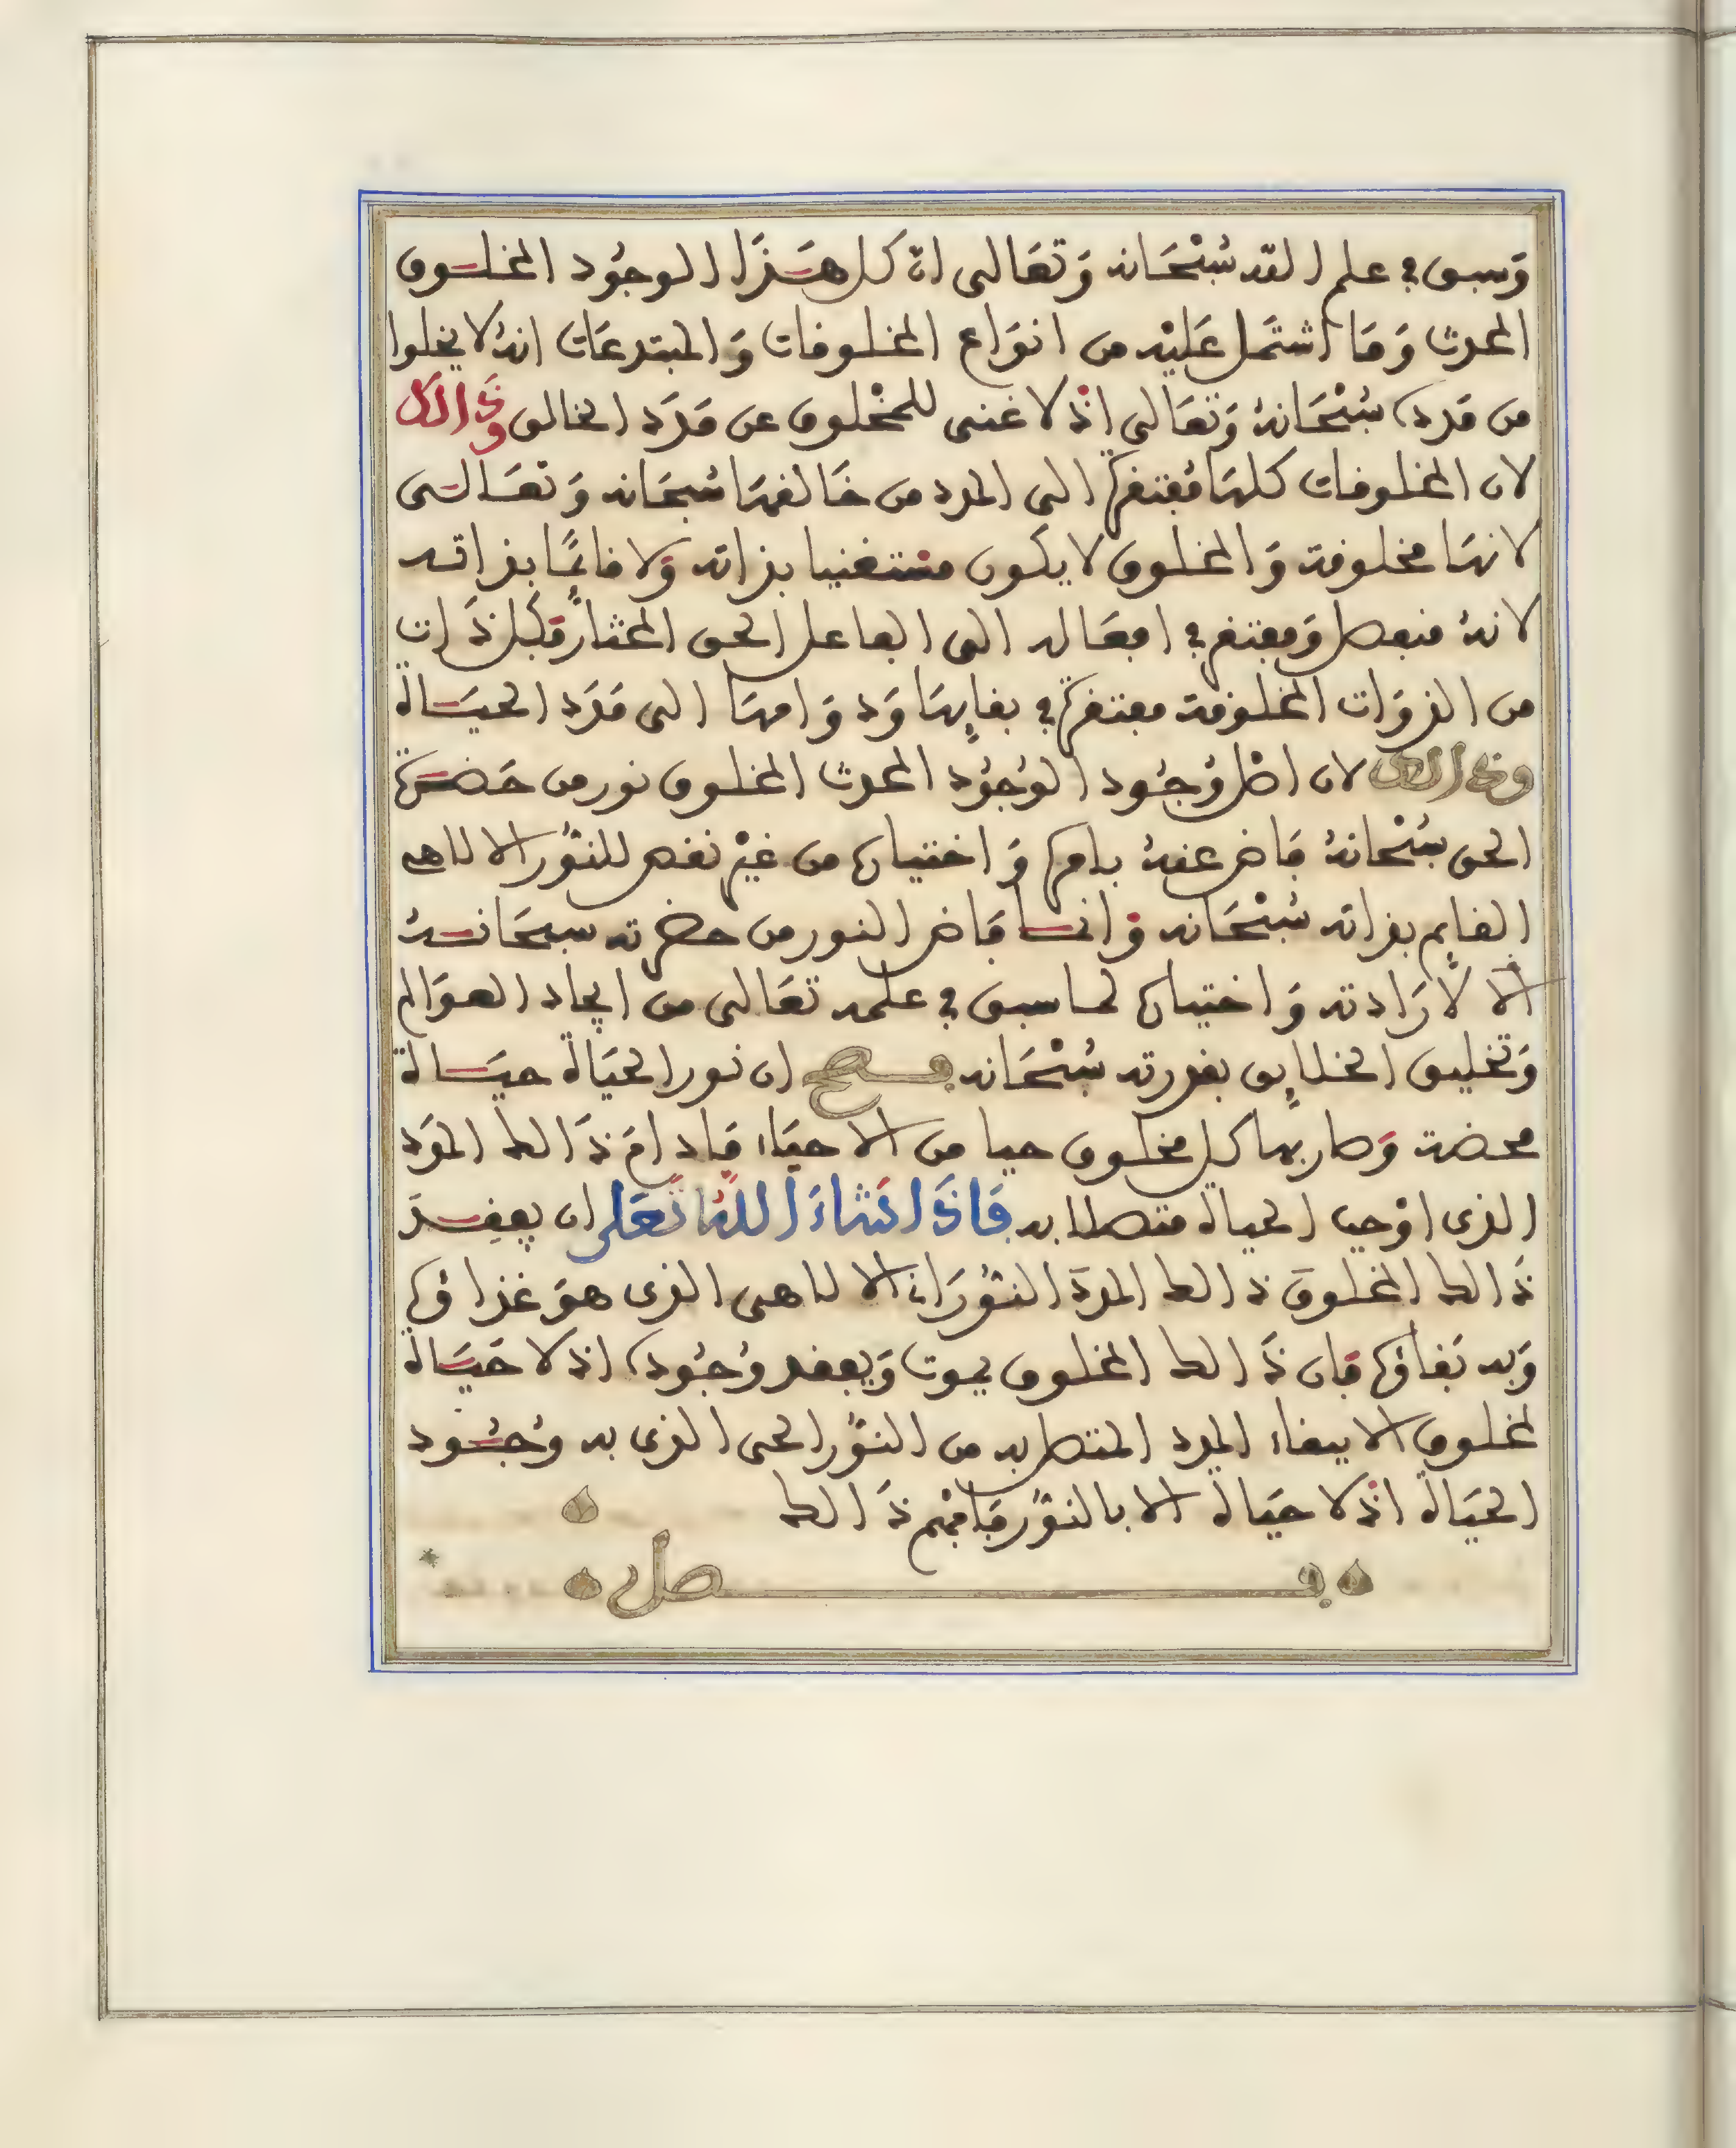 وَسبق في علم الله سُبْحَانه وَتعَالى انّ كل هَذَا الوجُود المخلوق
المحدث وَمَا اشتمَل عَليْه من انوَاع المخلوقات وَالمبتدعَات انهُ لا يخلوا
من مَدده سُبْحَانهُ وَتعَالى اذْ لا غنى للمخْلوق عن مَدَد الخالق وَذالك
لان المخلوقات كلهَا مُفتقرة الى المدد من خَالقهَا سُبحَانه وَتعَالى
لانهَا مخلوقة وَالمخلوق لا يكون مستغنيا بذاته وَلا قائمًا بذاته
لانهُ منفعل وَمفتقر في افعَاله الى الفاعل الحق المختار فكل ذَات
من الذوَات المخلوقة مفتقرة في بقايهَا وَدوَامهَا الى مَدَد الحيَاة
وذالك لان اصْل وُجُود الوُجُود المحدث المخلوق نور من حَضرة
الحق سُبْحانهُ فَاض عنهُ بامره وَاختياره من غيْر نقص للنُّور الالاهي
القايم بذاته سُبْحَانه وَانما فَاض النور من حضرته سبحَانهُ
الا لارَادته وَاختياره لما سبق في علمه تعَالى من ايجاد العوَالم
وَتخليق الخلايق بقدرته سُبْحَانه فصح ان نور الحيَاة حيَاة
محضة وَصار بها كل مخلوق حيا من الاحيَاء مَا دامَ ذَالك المدَد
الذى اوْجب الحياة متصلا به فَاذَا شَاءَ اللهُ تَعَلى ان يفقِدَ
ذَالك المخلوق ذالك المدَد النُّورَانى الالاهى الذى هوَ غذاؤه
وَبه بَقاؤه فان ذَالك المخلوق يموت وَيفقد وُجُوده اذ لا حَيَاة
لمخلوق الا ببقاء المدد المتصل به من النُّور الحى الذى به وُجُود
الحيَاة اذْ لا حيَاة الا بالنُّور فَافهَم ذَالك
فصل